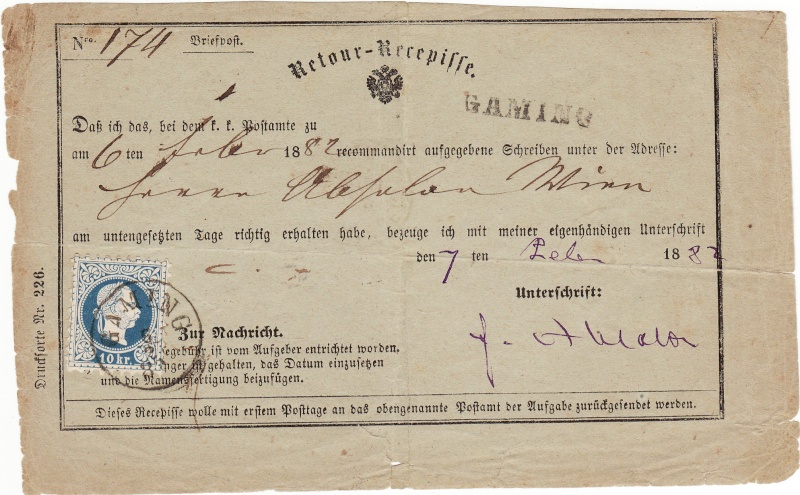 Nro. 174 Briefpost.
Retour-Recepisse.
GAMING
Daß ich das, bei dem k. k. Postamte zu
am 6 ten Feber 1882 recommandirt aufgegebene Schreiben unter der Adresse:
Herrn Absolon Wien
am untengesetzten Tage richtig erhalten habe, bezeuge ich mit meiner eigenhändigen Unterschrift
den 7 ten Feber 1882
Unterschrift:
GAMING
10 kr.
Zur Nachricht.
gebühr ist vom Aufgeber entrichtet worden.
nger ist gehalten, das Datum einzusetzen
und die Namensfertigung beizufügen.
Dieses Recepisse wolle mit erstem Posttage an das obengenannte Postamt der Aufgabe zurückgesendet werden.
Drucksorte Nr. 226.